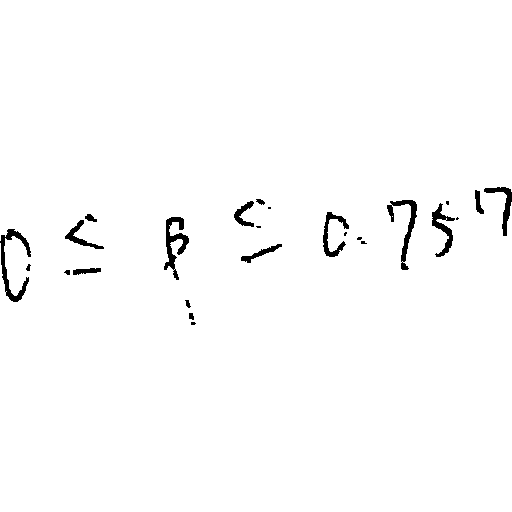 0 ≤ β ≤ 0.757